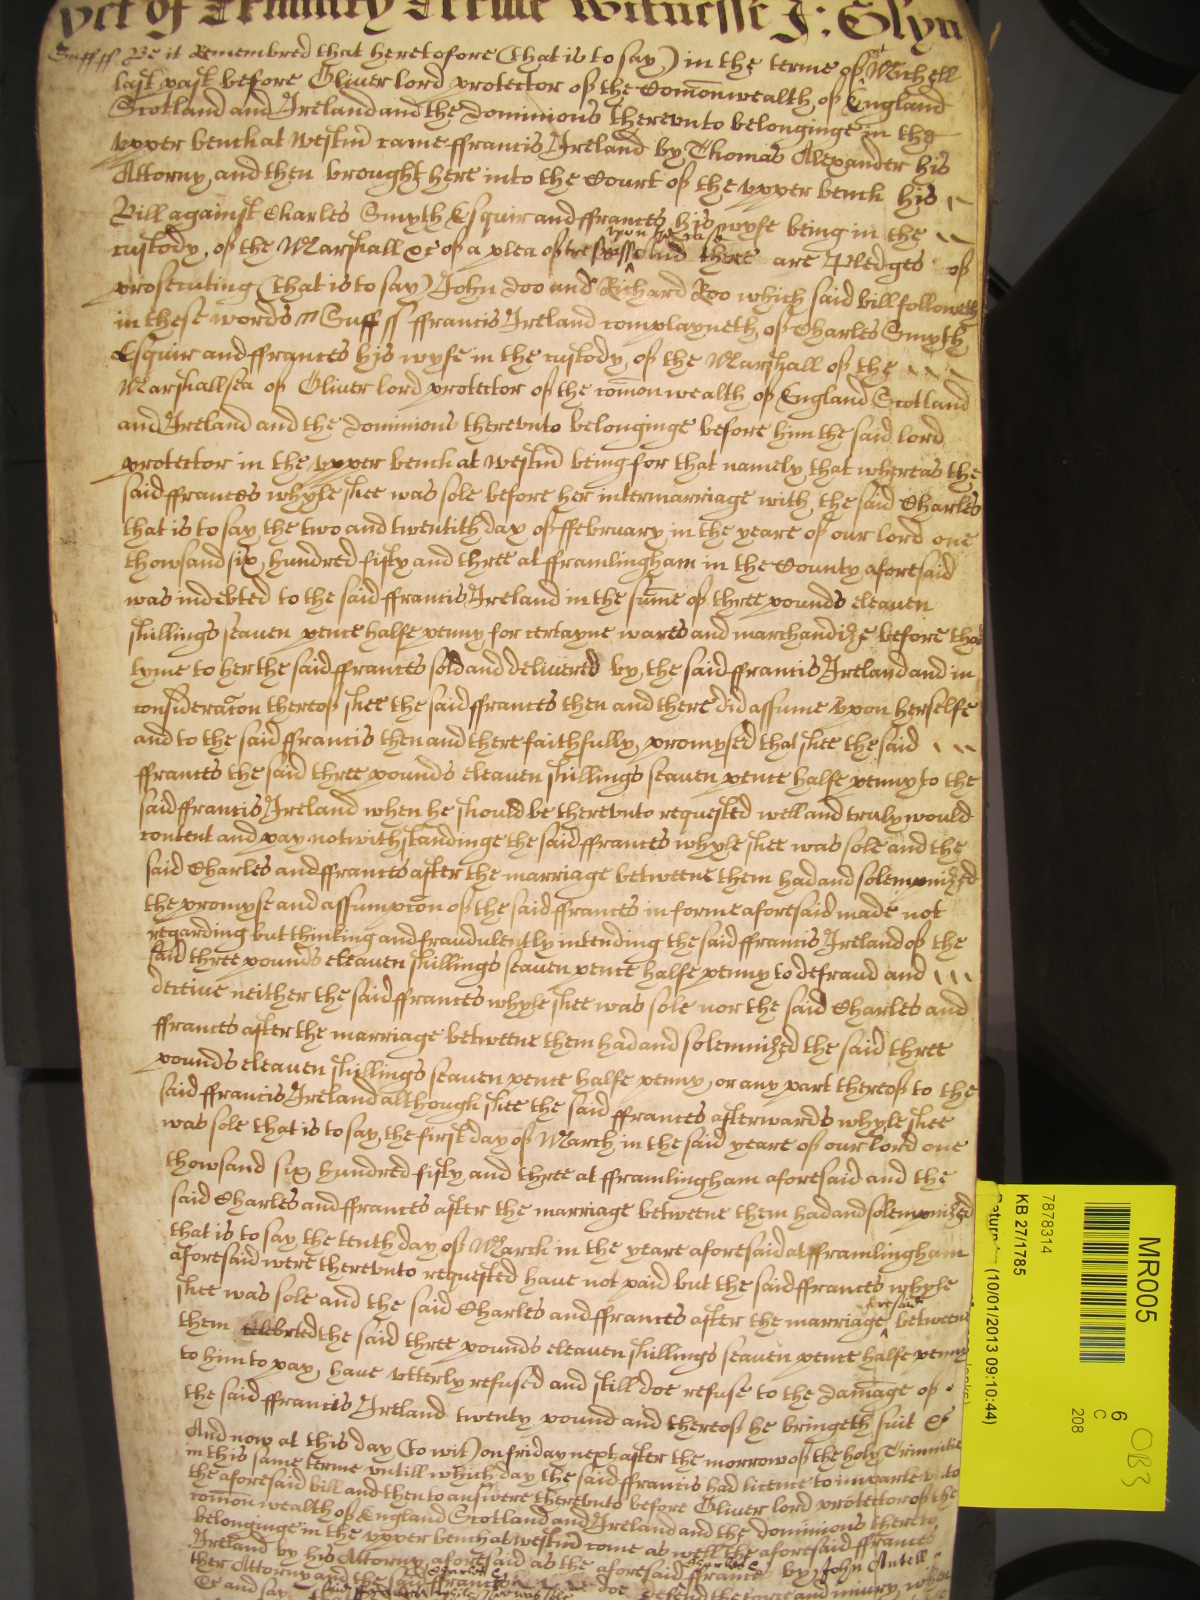 yet of Trinnity Terme Witnesse J: Glyn
Suff ss Be it Remembred that heretofore (that is to say) in the terme of st Michell
last past before Oliver lord protector of the Com̄onwealth of England
Scotland and Ireland and the Dominions therevnto belonginge in the
vpper bench at Westm̄ came ffrancis Ireland by Thomas Alexander his
Attorny, and then brought here into the Court of the vpper bench his
Bill against Charles Smyth Esquir and ffrances his wyfe being in the
custody, of the Marshall &c of a plea of trespasse vpon the case And there are Pledges of
prosecuting (that is to say) John Doo and Richard Roo which said bill followeth
in these words Suff ss ffrancis Ireland complayneth, of Charles Smyth
Esquir and ffrances his wyfe in the custody, of the Marshall of the
Marshallsea of Oliver lord protector of the com̄onwealth of England Scotland
and Ireland and the Dominions therevnto belonginge before him the said lord
protector in the vpper bench at Westm̄ being for that namely, that whereas the
said ffrances whyle shee was sole before her intermarriage with the said Charles
that is to say, the two and twentith day of ffebruary in the yeare of our lord one
thowsand six hundred fifty and three at fframlingham in the County aforesaid
was indebted to the said ffrancis Ireland in the sum̄e of three pounds eleauen
shillings seauen pence halfe penny for certayne wares and marchandize before that
tyme to her the said ffrances sold and delivered by, the said ffrancis Ireland and in
considerac̄on thereof shee the said ffrances then and there did assume vpon herselfe
and to the said ffrancis then and there faithfully, promysed that shee the said
ffrances the said three pounds eleauen shillings seauen pence halfe penny to the
said ffrancis Ireland when he should be therevnto requested well and truly would
content and pay notwithstandinge the said ffrances whyle shee was sole and the
said Charles and ffrances after the marriage betweene them had and solempnized
the promyse and assumpc̄on of the said ffrances in forme aforesaid made not
regarding but thinking and fraudulently intending the said ffrancis Ireland of the
said three pounds eleauen shillings seauen pence halfe penny to defraud and
deceive neither the said ffrances whyle shee was sole nor the said Charles and
ffrances after the marriage betweene them had and solemnized the said three
pounds eleauen shillings seauen pence halfe penny, or any part thereof to the
said ffrancis Ireland although shee the said ffrances afterwards whyle shee
was sole that is to say, the first day of March in the said yeare of our lord one
thowsand six hundred fifty and three at fframlingham aforesaid and the
said Charles and ffrances after the marriage betweene them had and solempnized
that is to say, the tenth day of March in the yeare aforesaid at fframlingham
aforesaid were therevnto requested haue not paid but the said ffrances whyle
shee was sole and the said Charles and ffrances after the marriage aforesaid betweene
them celebrted the said three pounds eleauen shillings seauen pence halfe penny
to him to pay, haue vtterly refused and still doe refuse to the Dam̄age of
the said ffrancis Ireland twenty pound and thereof he bringeth suit &c
And now at this day (to wit) on friday next after the morrow of the holy Trinnitie
in this same terme vntill which day the said ffrancis had licence to imparle vnto
the aforesaid bill and then to answere therevnto before Oliver lord protector of the
com̄on wealth of England Scotland and Ireland and the dominions thereto
belonginge in the vpper bench at Westm̄ come as well the aforesaid ffrancis
Ireland by his Attorny aforesaid as the aforesaid Charles ffrances by John Antell
ther Attorny and the said ffrances doe defend the force and iniury, when
&c and say
MR005
7878314
KB 27/1785
(10/01/2013 09:10:44)
6
C
208
OB3